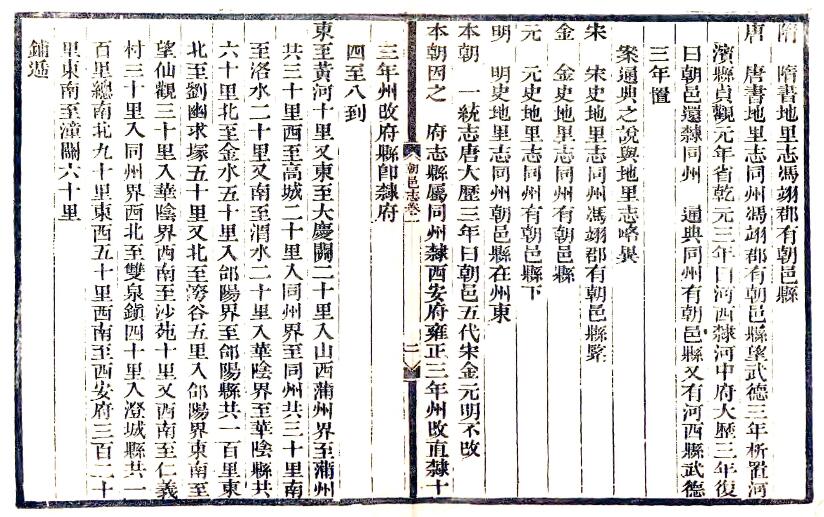 隋　隋書地里志馮翊郡有朝邑縣
唐　唐書地里志同州馮翊郡有朝邑縣望武德三年析置河
濱縣貞觀元年省乾元三年曰河西隸河中府大歷三年復
曰朝邑還隸同州　通典同州有朝邑縣又有河西縣武德
三年置
案通典之說與地里志略異
宋　宋史地里志同州馮翊郡有朝邑縣緊
金　金史地里志同州有朝邑縣
元　元史地里志同州有朝邑縣下
明　明史地里志同州朝邑縣在州東
本朝　一統志唐大歷三年曰朝邑五代宋金元明不改
本朝因之　府志縣屬同州隸西安府雍正三年州改直隸十
朝邑志卷一
二
三年州改府縣卽隸府
四至八到
東至黃河十里又東至大慶關二十里入山西蒲州界至蒲州
共三十里西至高城二十里入同州界至同州共三十里南
至洛水二十里又南至渭水二十里入華陰界至華陰縣共
六十里北至金水五十里入郃陽界至郃陽縣共一百里東
北至劉幽求塚五十里又北至谷五里入郃陽界東南至
望仙觀三十里入華陰界西南至沙苑十里又西南至仁義
村三十里入同州界西北至雙泉鎮四十里入澄城縣共一
百里總南北九十里東西五十里西南至西安府三百二十
里東南至潼關六十里
鋪遞